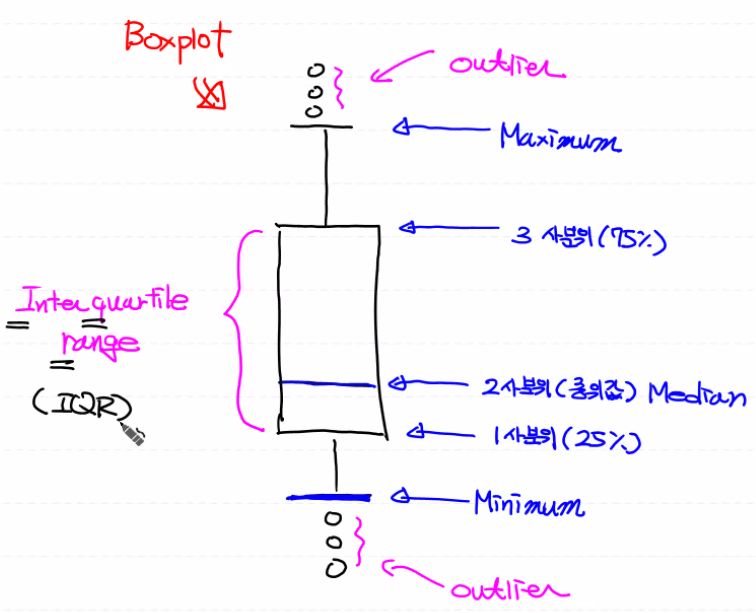 Boxplot
outlier
Maximum
3 사분위(75%)
Interquartile
range
(IQR)
2사분위(중위값) Median
1사분위(25%)
Minimum
outlier